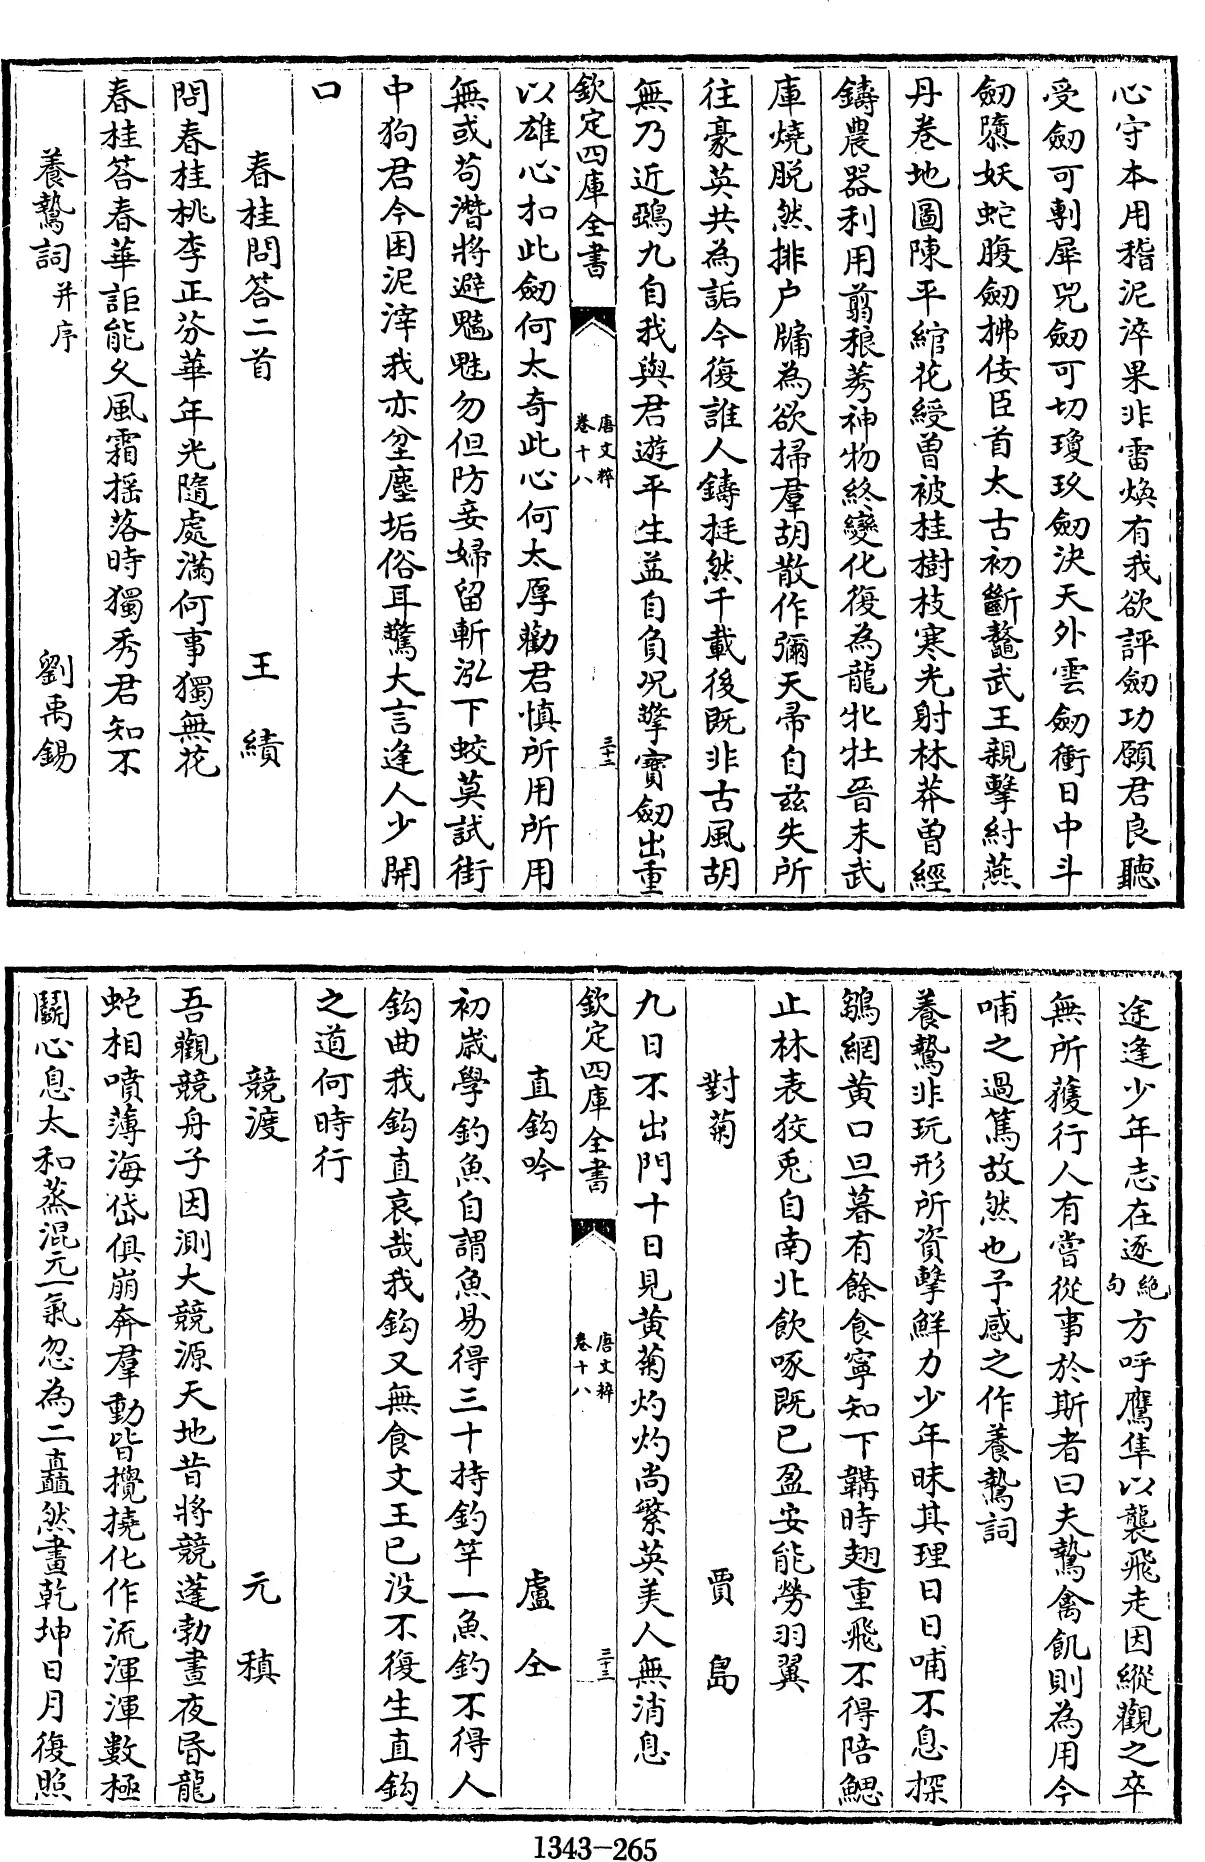 心守本用稽泥滓果非雷煥有我欲評劒功願君良聽
受劒可剸犀兕劒可切瓊玖劒決天外雲劒衝日中斗
劒隳妖蛇腹劒拂佞臣首太古初斷鼇武王親擊紂燕
丹卷地圖陳平綰花綬曽被桂樹枝寒光射林莽曽經
鑄農器利用翦稂莠神物終變化復為龍牝牡晉末武
庫燒脱然排户牖為欲掃羣胡散作彌天帚自兹失所
往豪英共為詬今復誰人鑄挺然千載後既非古風胡
無乃近鵶九自我與君遊平生益自負況擎寶劒出重
欽定四庫全書
唐文粹
卷十八
三十二
以雄心扣此劒何太奇此心何太厚勸君慎所用所用
無或苟潛將避魑魅勿但防妾婦留斬泓下蛟莫試街
中狗君今困泥滓我亦坌塵垢俗耳驚大言逢人少開
口
春桂問答二首 王績
問春桂桃李正芬華年光隨處滿何事獨無花
春桂答春華詎能久風霜揺落時獨秀君知不
養鷙詞并序 劉禹錫
途逢少年志在逐絶句方呼鷹隼以襲飛走因縱觀之卒
無所獲行人有嘗從事於斯者曰夫鷙禽飢則為用今
哺之過篤故然也予感之作養鷙詞
養鷙非玩形所資擊鮮力少年昧其理日日哺不息探
鶵網黄口旦暮有餘食寧知下韝時翅重飛不得陪鰓
止林表狡兎自南北飲啄既已盈安能勞羽翼
對菊 賈島
九日不出門十日見黄菊灼灼尚繁英美人無消息
欽定四庫全書
唐文粹
卷十八
三十三
直鈎吟 盧仝
初歳學釣魚自謂魚易得三十持釣竿一魚釣不得人
鈎曲我鈎直哀哉我鈎又無食文王已没不復生直鈎
之道何時行
競渡 元稹
吾觀競舟子因測大競源天地昔將競蓬勃晝夜昏龍
蛇相噴薄海岱俱崩奔羣動皆攪撓化作流渾渾數極
鬭心息太和蒸混元一氣忽為二矗然畫乾坤日月復照
1343-265